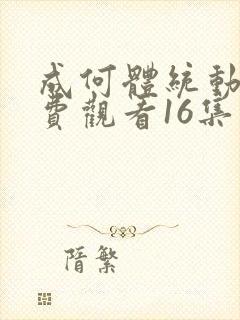 成何體統動
費觀看16集
隋繁